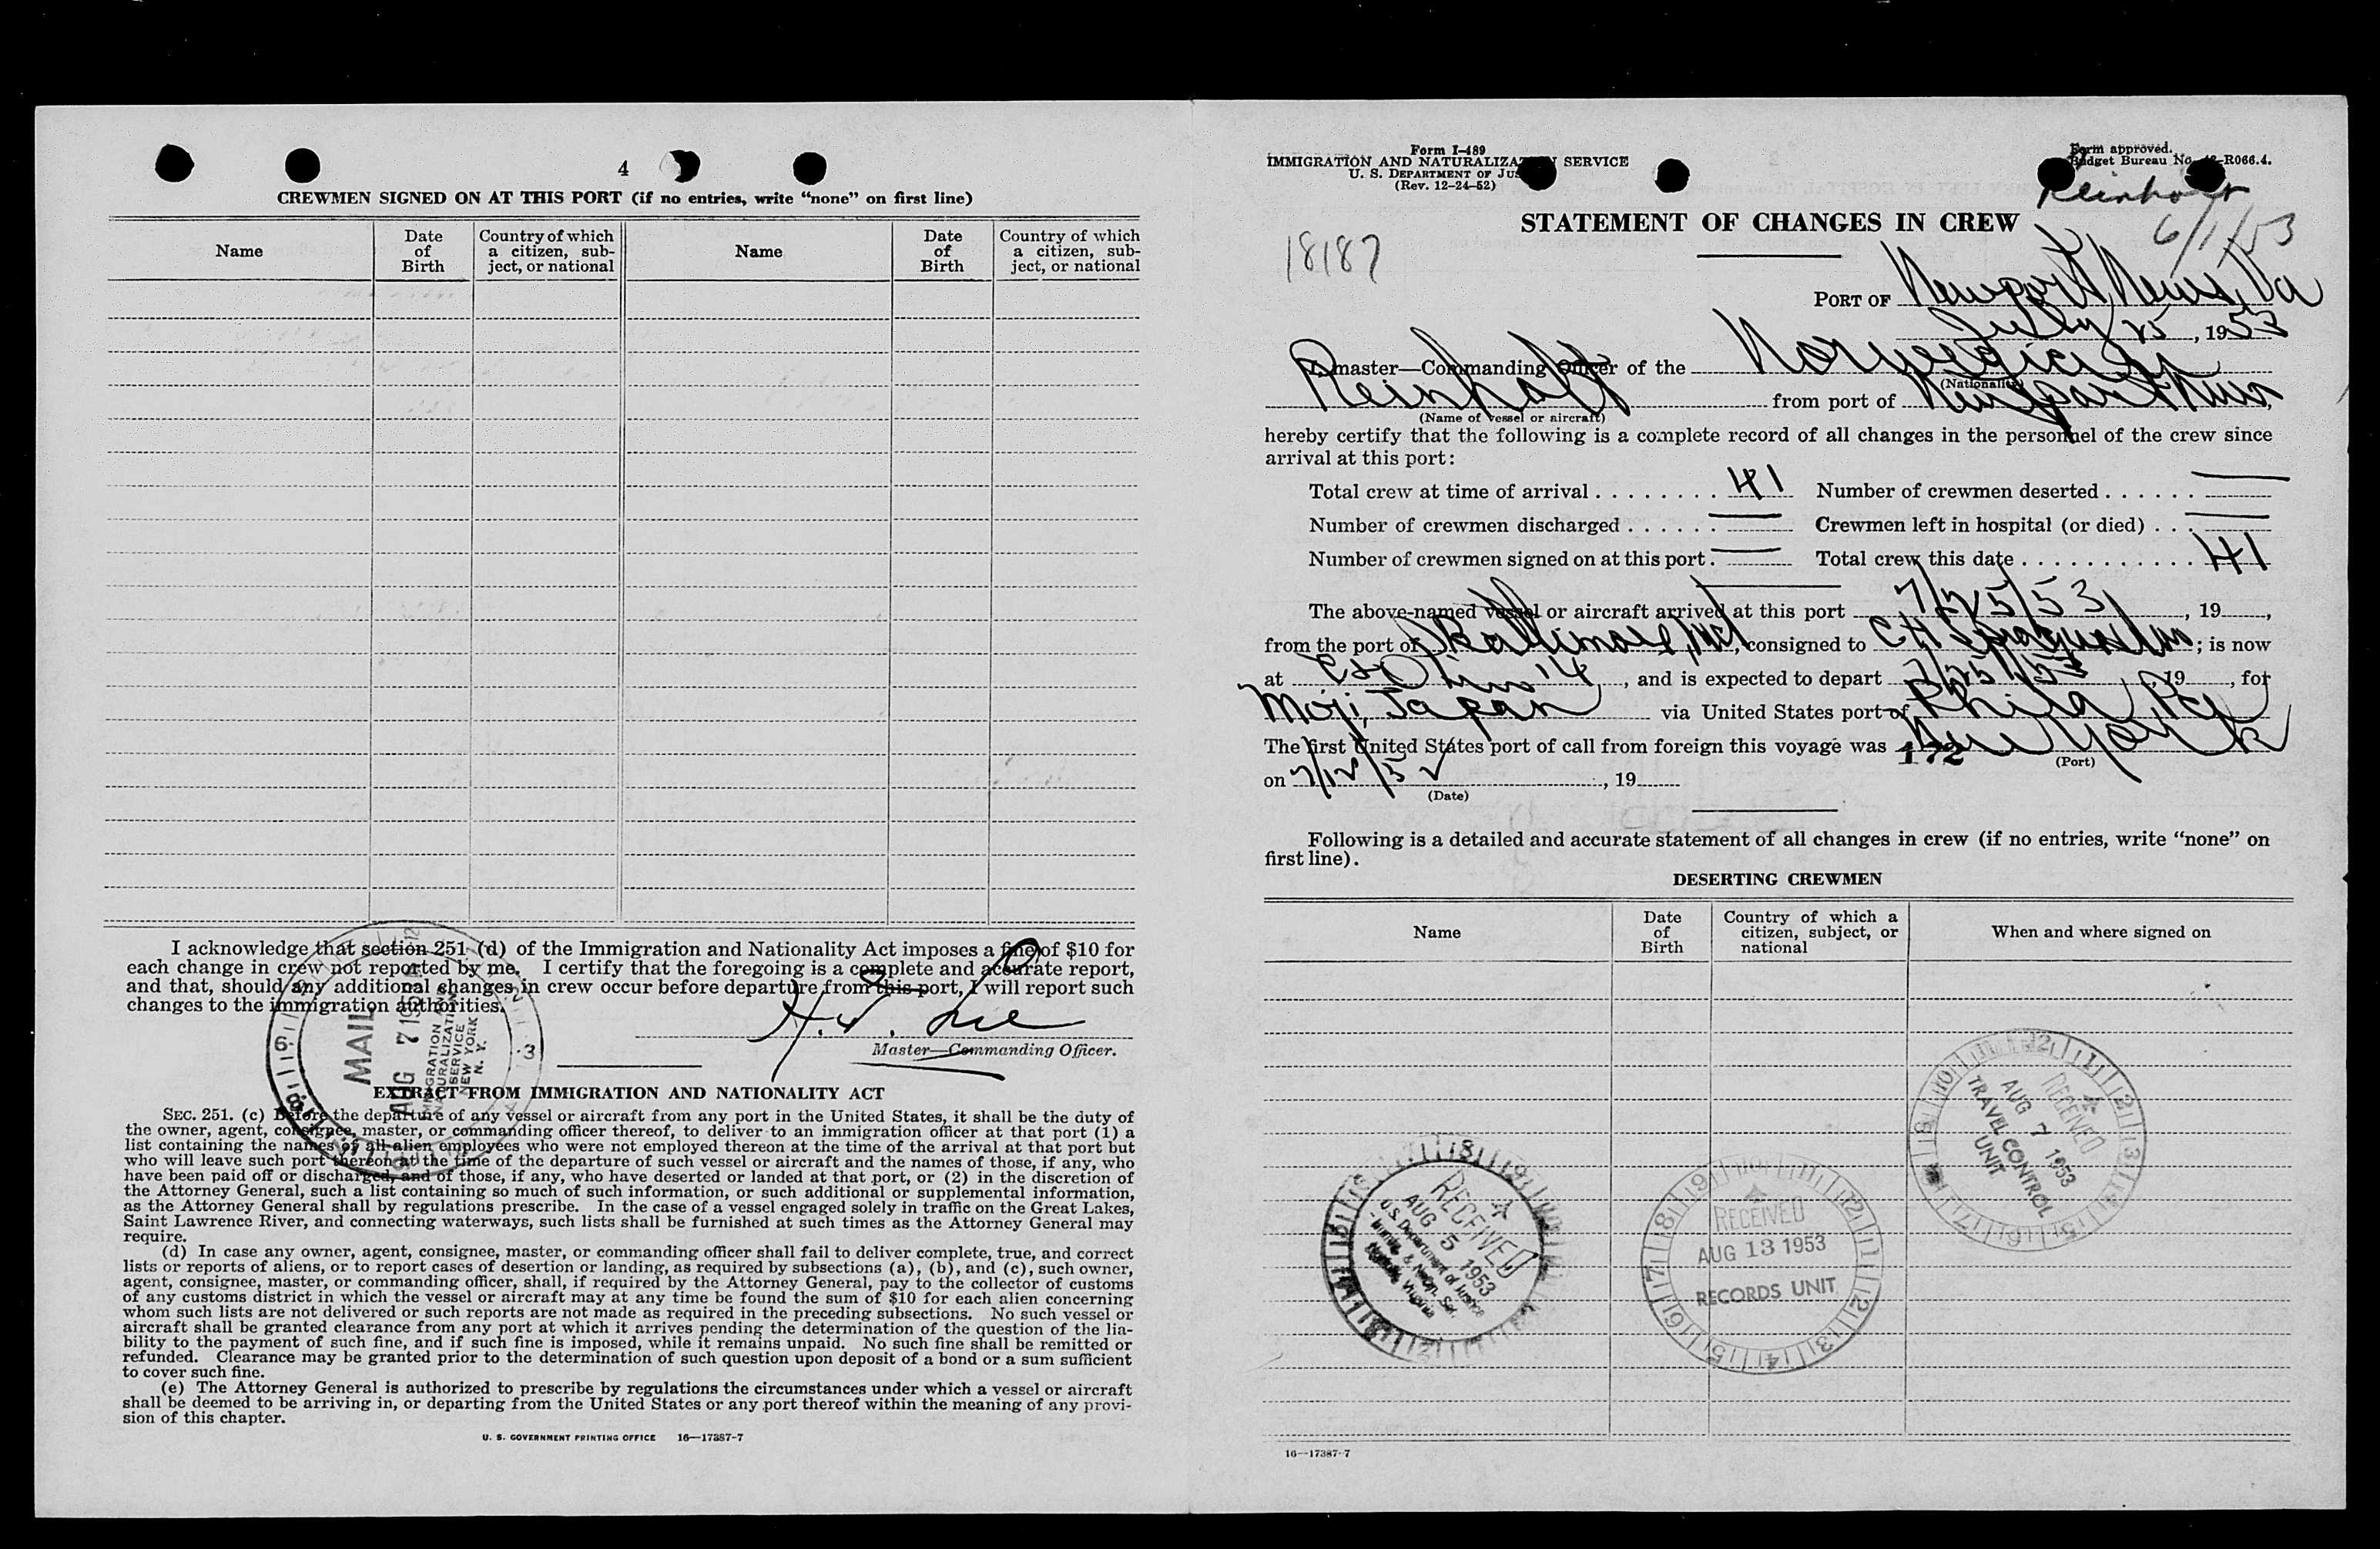 4
CREWMEN SIGNED ON AT THIS PORT (if no entries, write “none” on first line)
Name
Date of Birth
Country of which a citizen, subject, or national
Name
Date of Birth
Country of which a citizen, subject, or national
I acknowledge that section 251 (d) of the Immigration and Nationality Act imposes a fine of $10 for
each change in crew not reported by me. I certify that the foregoing is a complete and accurate report,
and that, should any additional changes in crew occur before departure from this port, I will report such
changes to the immigration authorities.
Master—Commanding Officer.
MAIL
AUG 7 195
IMMIGRATION AND
NATURALIZATION
SERVICE
NEW YORK
N. Y.
EXTRACT FROM IMMIGRATION AND NATIONALITY ACT
SEC. 251. (c) Before the departure of any vessel or aircraft from any port in the United States, it shall be the duty of
the owner, agent, consignee, master, or commanding officer thereof, to deliver to an immigration officer at that port (1) a
list containing the names of all alien employees who were not employed thereon at the time of the arrival at that port but
who will leave such port thereon at the time of the departure of such vessel or aircraft and the names of those, if any, who
have been paid off or discharged, and of those, if any, who have deserted or landed at that port, or (2) in the discretion of
the Attorney General, such a list containing so much of such information, or such additional or supplemental information,
as the Attorney General shall by regulations prescribe. In the case of a vessel engaged solely in traffic on the Great Lakes,
Saint Lawrence River, and connecting waterways, such lists shall be furnished at such times as the Attorney General may
require.
(d) In case any owner, agent, consignee, master, or commanding officer shall fail to deliver complete, true, and correct
lists or reports of aliens, or to report cases of desertion or landing, as required by subsections (a), (b), and (c), such owner,
agent, consignee, master, or commanding officer, shall, if required by the Attorney General, pay to the collector of customs
of any customs district in which the vessel or aircraft may at any time be found the sum of $10 for each alien concerning
whom such lists are not delivered or such reports are not made as required in the preceding subsections. No such vessel or
aircraft shall be granted clearance from any port at which it arrives pending the determination of the question of the lia-
bility to the payment of such fine, and if such fine is imposed, while it remains unpaid. No such fine shall be remitted or
refunded. Clearance may be granted prior to the determination of such question upon deposit of a bond or a sum sufficient
to cover such fine.
(e) The Attorney General is authorized to prescribe by regulations the circumstances under which a vessel or aircraft
shall be deemed to be arriving in, or departing from the United States or any port thereof within the meaning of any provi-
sion of this chapter.
U. S. GOVERNMENT PRINTING OFFICE 16—17387-7
Form I-489
IMMIGRATION AND NATURALIZATION SERVICE
U. S. DEPARTMENT OF JUS
(Rev. 12-24-52)
Form approved.
Budget Bureau No. -R066.4.
Reinholt
6/1/53
18187
STATEMENT OF CHANGES IN CREW
PORT OF Newport News, Va
July 25, 1953
I, master—Commanding Officer of the Norwegian
(Nationality)
Reinholt from port of Newport News,
(Name of vessel or aircraft)
hereby certify that the following is a complete record of all changes in the personnel of the crew since
arrival at this port:
Total crew at time of arrival 41 Number of crewmen deserted —
Number of crewmen discharged — Crewmen left in hospital (or died) —
Number of crewmen signed on at this port — Total crew this date 41
The above-named vessel or aircraft arrived at this port 7/25/53, 19 ,
from the port of Baltimore, Md, consigned to C H Sprague & Son; is now
at C & O Pier 14, and is expected to depart 7/25/53, 19 , for
Moji, Japan via United States port of Phila, Pa
The first United States port of call from foreign this voyage was New York
172
(Port)
on 7/12/53, 19
(Date)
Following is a detailed and accurate statement of all changes in crew (if no entries, write “none” on
first line).
DESERTING CREWMEN
Name
Date of Birth
Country of which a citizen, subject, or national
When and where signed on
RECEIVED
AUG 7 1953
TRAVEL CONTROL
UNIT
RECEIVED
AUG 5 1953
U.S. Department of Justice
Immig. & Natzn. Ser.
Norfolk, Virginia
RECEIVED
AUG 13 1953
RECORDS UNIT
16—17387-7